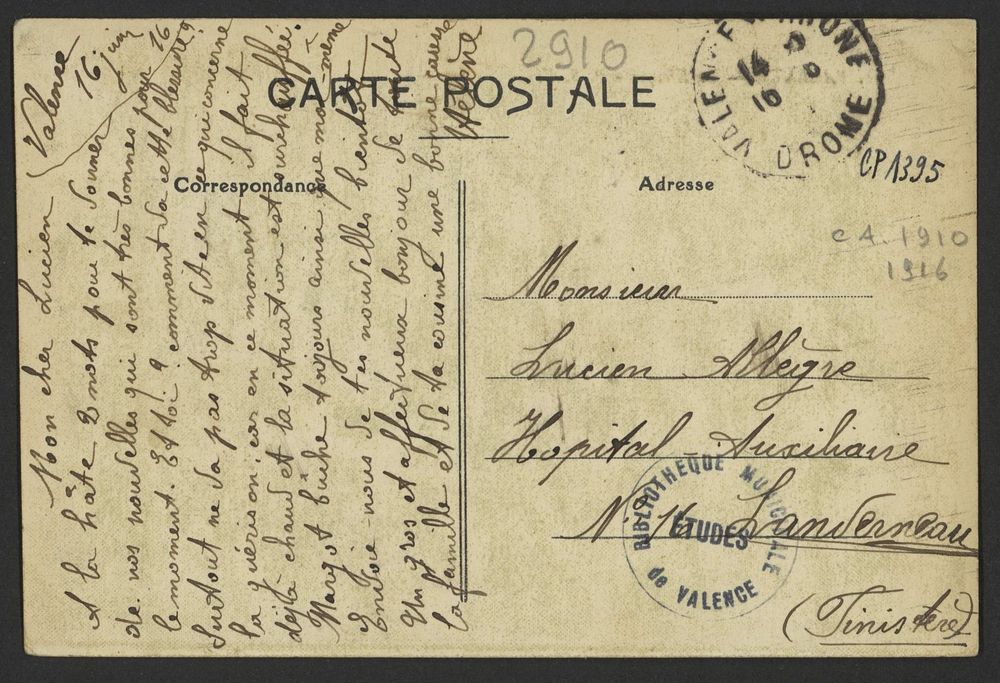 2910
CARTE POSTALE
Correspondance
Adresse
VALENCE
DROME
14
16
CP 1395
CA. 1910
1916
Valence
16 juin
16
Mon cher Lucien
A la hâte 2 mots pour te donner
de nos nouvelles qui sont très bonnes pour
le moment. Et toi ? comment va cette blessure ?
Surtout ne va pas trop vite en ce qui concerne
la guérison, car en ce moment il fait
déjà chaud et la situation est surchauffée.
Margot bûche toujours ainsi que moi-même
Envoie-nous de tes nouvelles bientôt
Un gros et affectueux bonjour de toute
la famille et de ta cousine une bonne caresse
Hélène
Monsieur
Lucien Allègre
Hopital Auxiliaire
N° 16 Landerneau
(Finistère)
BIBLIOTHEQUE MUNICIPALE
ETUDES
de VALENCE